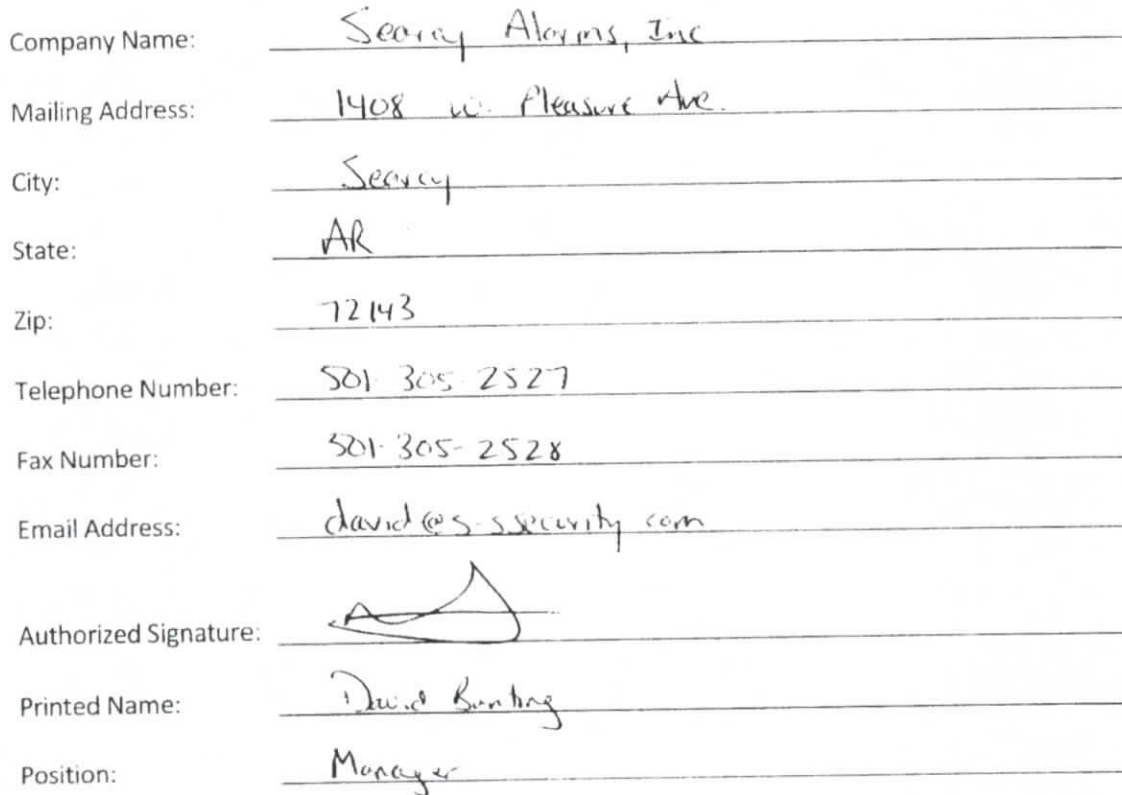 Company Name: Searcy Alarms, Inc
Mailing Address: 1408 W. Pleasure Ave.
City: Searcy
State: AR
Zip: 72143
Telephone Number: 501-305-2527
Fax Number: 501-305-2528
Email Address: david@s-ssecurity.com
Authorized Signature:
Printed Name: David Bunting
Position: Manager